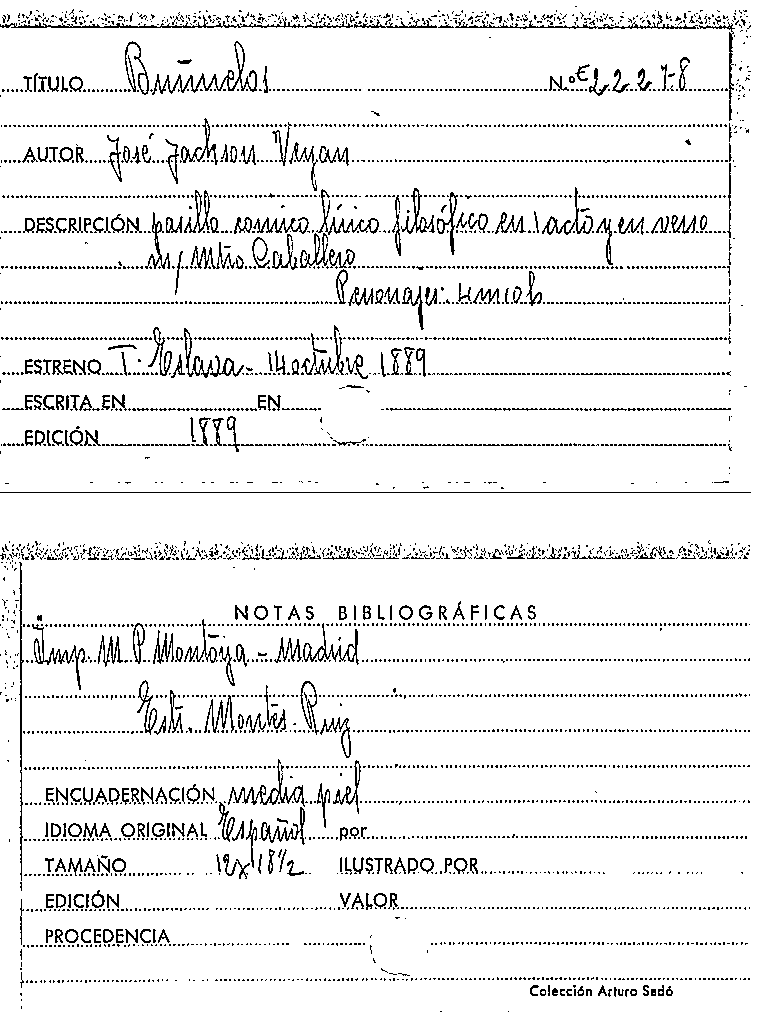 TÍTULO Buñuelos N.º E 2227-8
AUTOR José Jackson Veyan
DESCRIPCIÓN pasillo comico lirico filosófico en 1 acto y en verso
m/ Mtro Caballero
Personajes:
ESTRENO T. Eslava - 14 octubre 1889
ESCRITA EN EN
EDICIÓN 1889
NOTAS BIBLIOGRÁFICAS
Imp. M P Montoya - Madrid
Estr. Montes. Ruiz
ENCUADERNACIÓN media piel
IDIOMA ORIGINAL Español por
TAMAÑO 12 x 18 1/2 ILUSTRADO POR
EDICIÓN VALOR
PROCEDENCIA
Colección Arturo Sedó